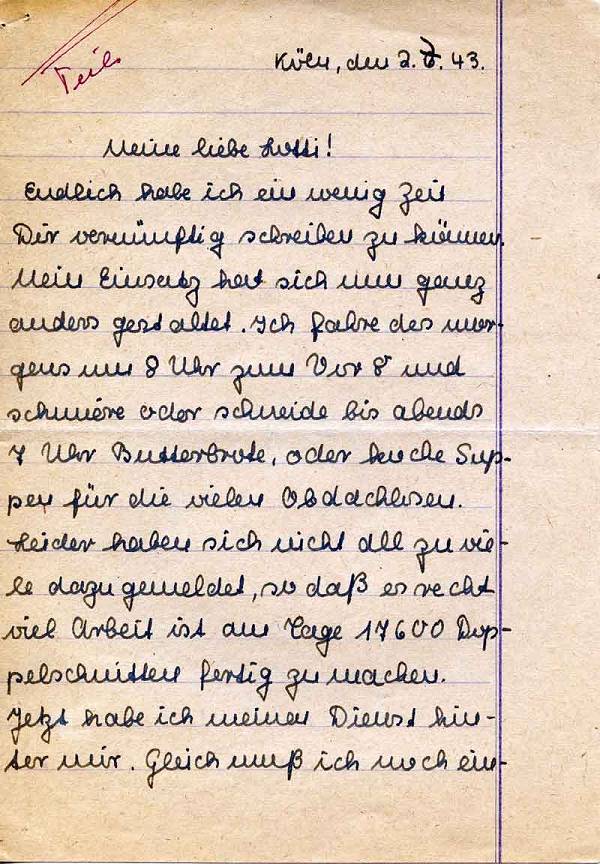 Teil
Köln, den 2.7.43.
Meine liebe Lotti!
Endlich habe ich ein wenig Zeit
Dir vernünftig schreiben zu können.
Mein Einsatz hat sich nun ganz
anders gestaltet. Ich fahre des mor-
gens um 8 Uhr zum Vor 8 und
schmiere oder schneide bis abends
7 Uhr Butterbrote, oder koche Sup-
pen für die vielen Obdachlosen.
Leider haben sich nicht all zu vie-
le dazu gemeldet, so daß es recht
viel Arbeit ist am Tage 17600 Dop-
pelschnitten fertig zu machen.
Jetzt habe ich meinen Dienst hin-
ter mir. Gleich muß ich noch ein-